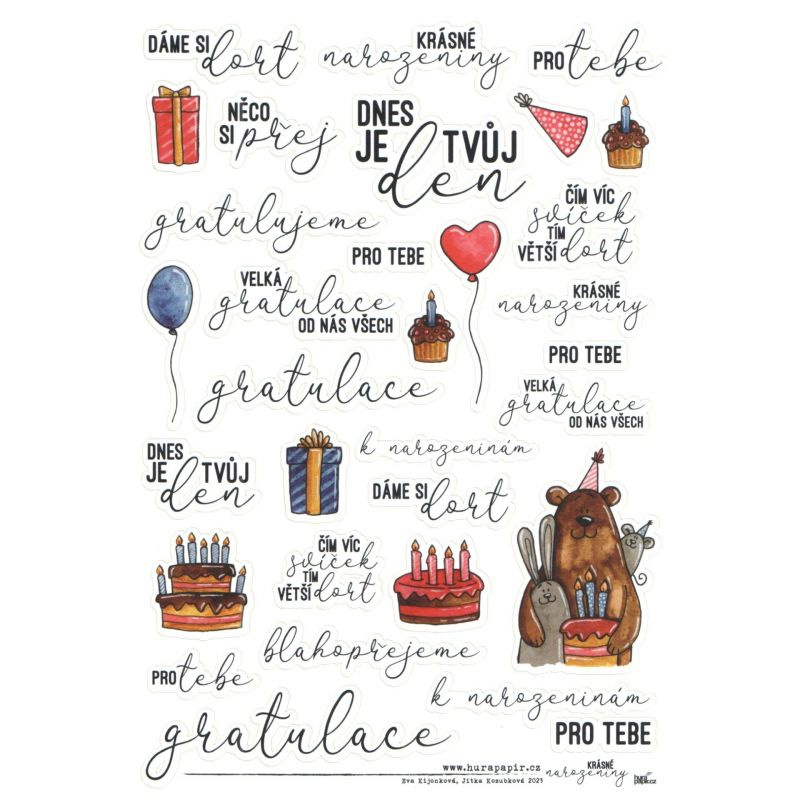 DÁME SI dort
KRÁSNÉ
narozeniny
PRO tebe
NĚCO
SI přej
DNES
JE TVŮJ
den
gratulujeme
ČÍM VÍC
svíček
TÍM
VĚTŠÍ dort
PRO TEBE
VELKÁ
gratulace
OD NÁS VŠECH
KRÁSNÉ
narozeniny
PRO TEBE
gratulace
VELKÁ
gratulace
OD NÁS VŠECH
DNES
JE TVŮJ
den
k narozeninám
DÁME SI dort
ČÍM VÍC
svíček
TÍM
VĚTŠÍ dort
blahopřejeme
PRO tebe
k narozeninám
gratulace
PRO TEBE
www.hurapapir.cz
Eva Kijonková, Jitka Kozubková 2023
KRÁSNÉ
narozeniny
hura
papir.cz